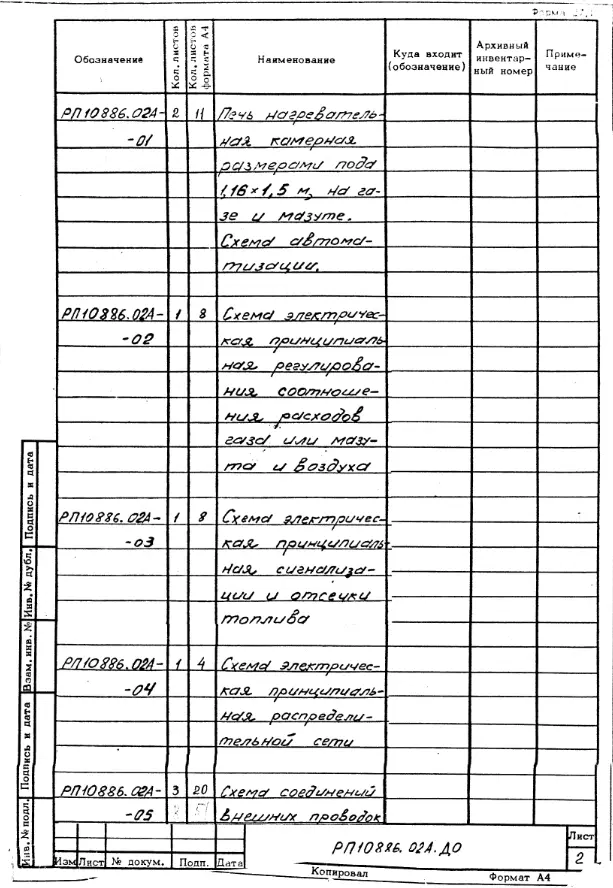 Форма
Обозначение Кол. листов Кол. листов формата А4 Наименование Куда входит (обозначение) Архивный инвентар-ный номер Приме-чание
РП10886.02А- 2 11 Печь нагреватель-
-01 ная камерная
размерами пода
1,16×1,5 м, на га-
зе и мазуте.
Схема автома-
тизации.
РП10886.02А- 1 8 Схема электричес-
-02 кая принципиаль-
ная регулирова-
ния соотноше-
ния расходов
газа или мазу-
та и воздуха
РП10886.02А- 1 8 Схема электричес-
-03 кая принципиаль-
ная сигнализа-
ции и отсечки
топлива
РП10886.02А- 1 4 Схема электричес-
-04 кая принципиаль-
ная распредели-
тельной сети
РП10886.02А- 3 20 Схема соединений
-05 внешних проводок
Инв.№ подл. Подпись и дата Взам. инв. № Инв.№ дубл. Подпись и дата
РП10886.02А.ДО
Лист
2
Изм Лист № докум. Подп. Дата
Копировал Формат А4